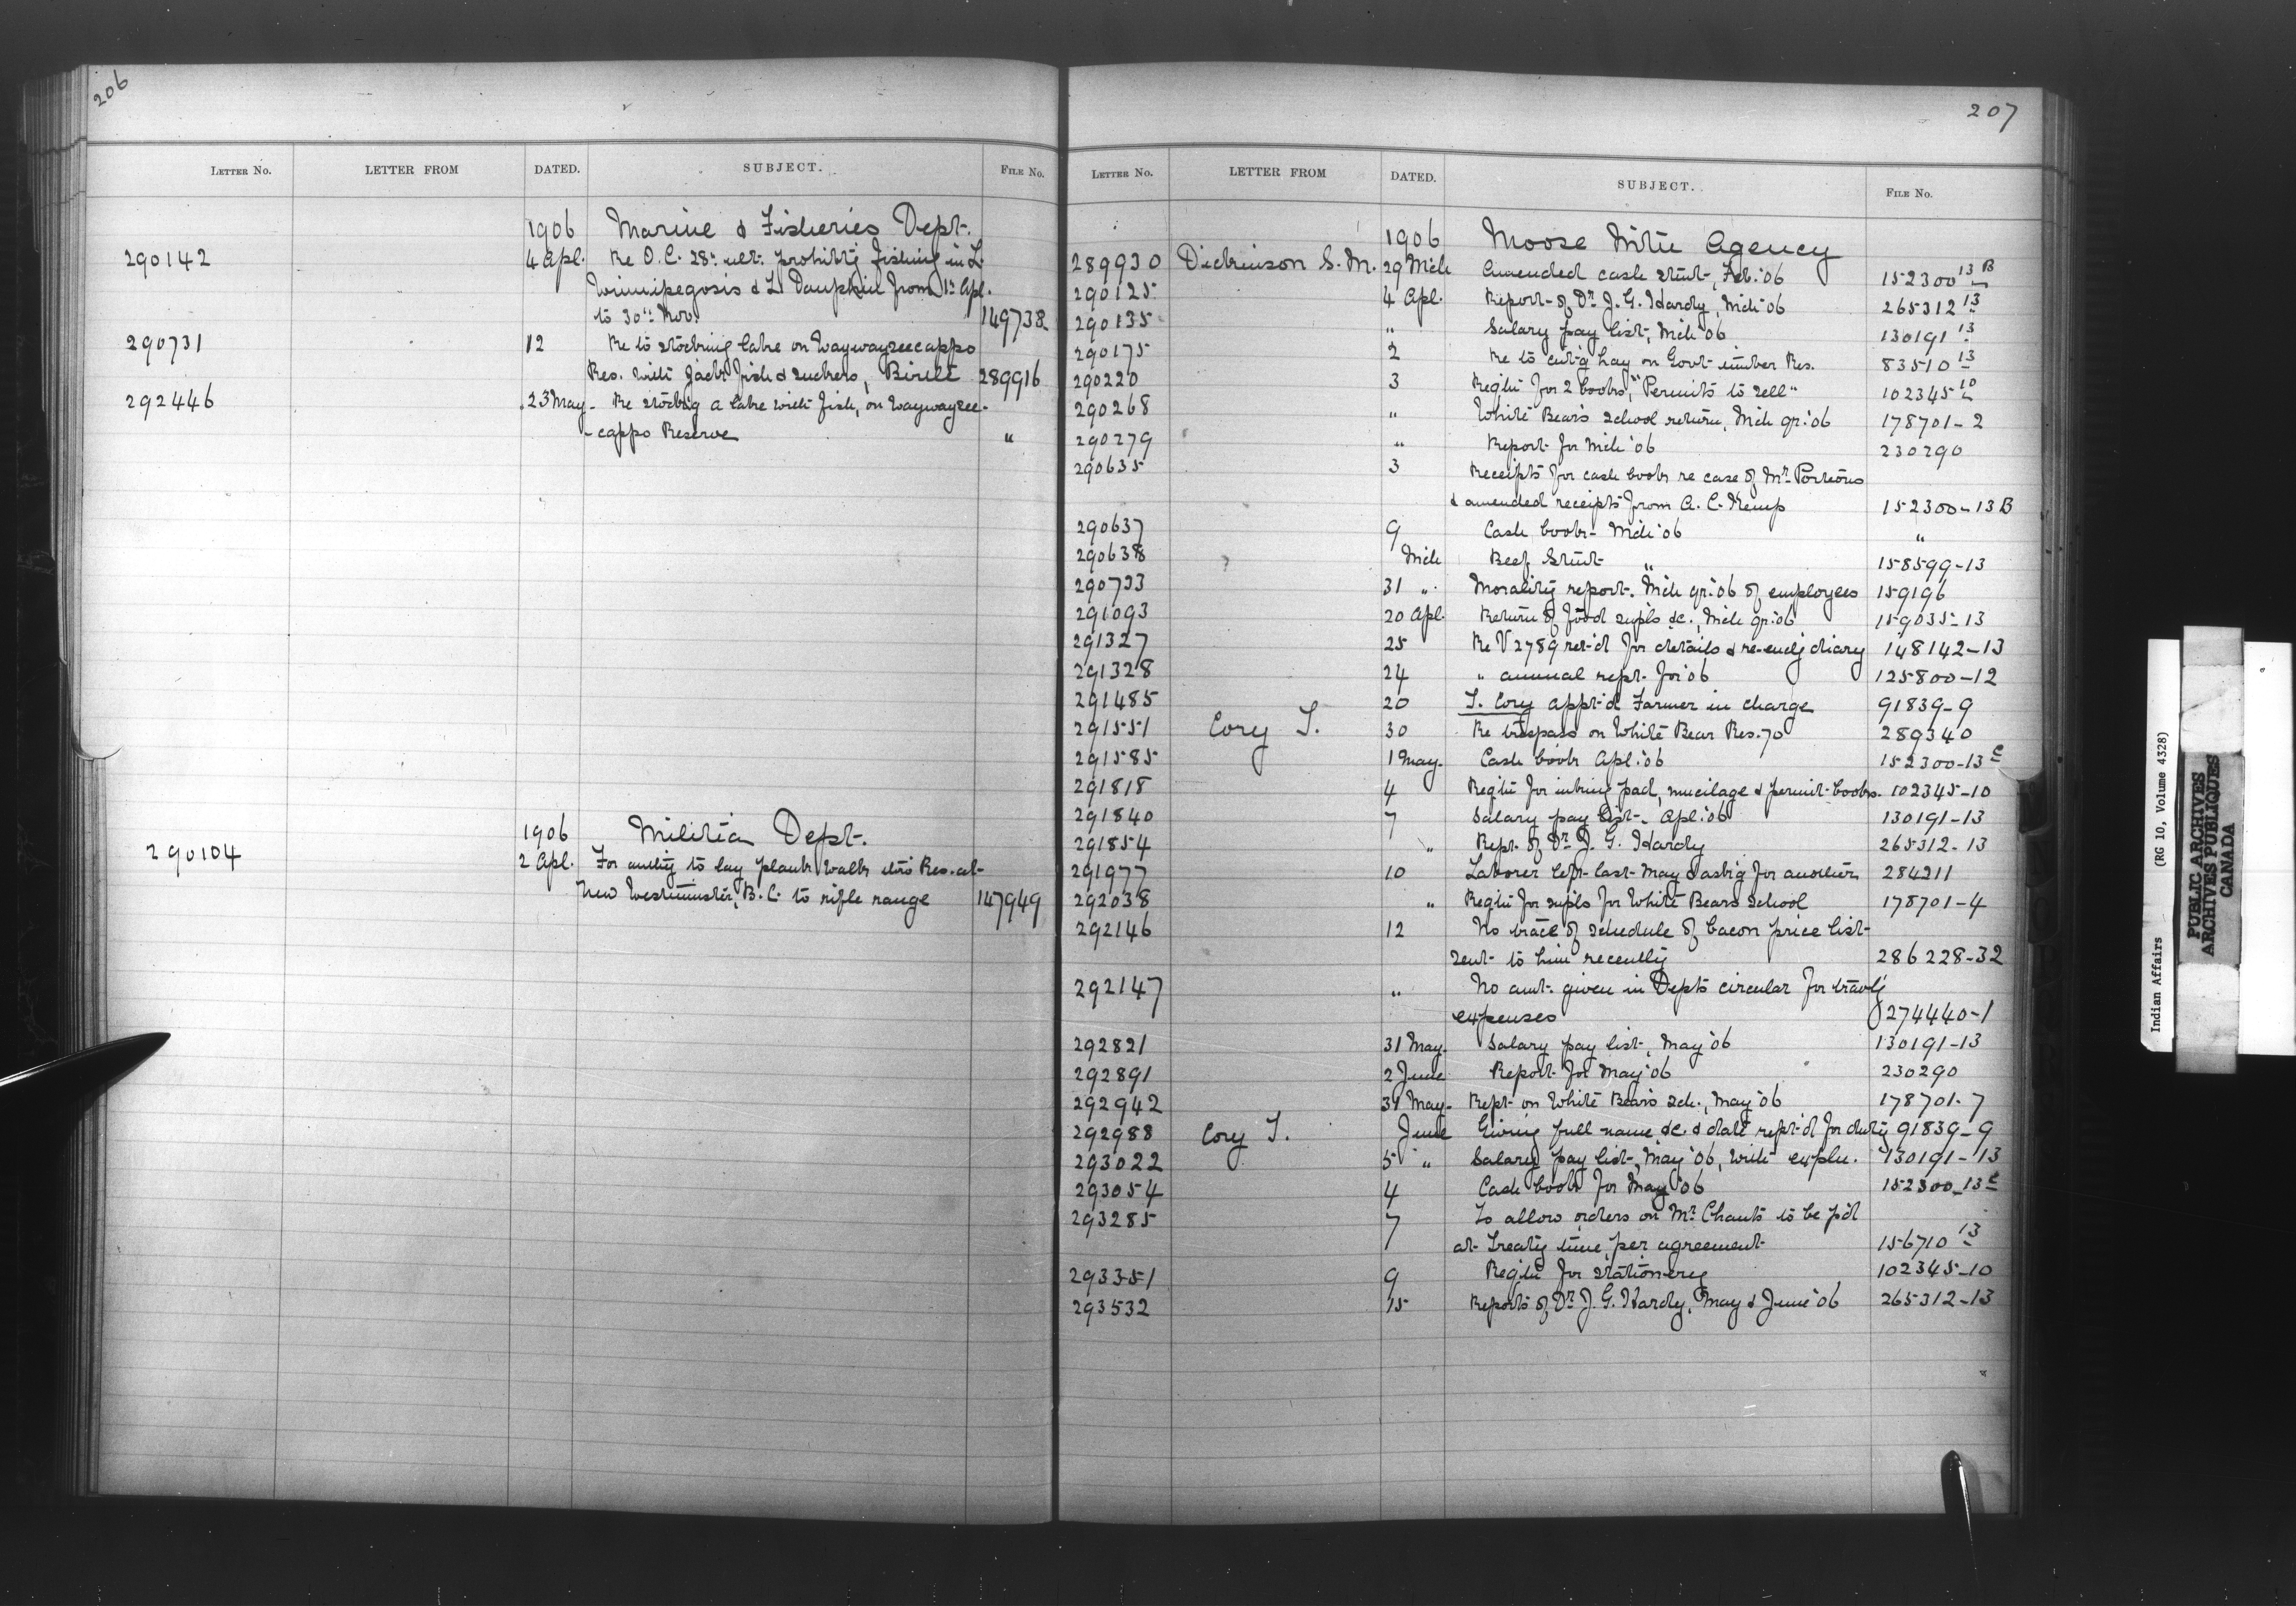 206
LETTER NO. LETTER FROM DATED. SUBJECT. FILE NO.
1906 Marine & Fisheries Dept.
290142 4 Apl. Re O.C. 28th ult. prohibit'g fishing in L.
Winnipegosis & L. Dauphin from 1st Apl.
to 30th Nov. 149738
290731 12 Re to stocking lake on Waywayseecappo
Res. with Jack fish & suckers, Birtle 289916
292446 23 May - Re stock'g a lake with fish, on Waywaysee-
-cappo Reserve "
1906 Militia Dept.
290104 2 Apl. For auth'y to lay plank walk thro Res. at
New Westminster, B.C. to rifle range 147949
207
LETTER NO. LETTER FROM DATED. SUBJECT. FILE NO.
1906 Moose Mtn Agency
289930 Dickinson S. M. 29 Mch Amended cash stmt, Feb. '06 152300 13 B
290125 4 Apl. Report of Dr. J. G. Hardy, Mch '06 265312 13
290135 " Salary pay list, Mch '06 130191 13
290175 2 Re to cut'g hay on Govt timber Res. 83510 13
290220 3 Reqtn for 2 books, "Permits to sell" 102345 10
290268 " White Bear's School return, Mch qr. '06 178701-2
290279 " Report for Mch '06 230290
290635 3 Receipts for cash book re case of Mr. Porteous
& amended receipts from A. C. Kemp 152300-13 B
290637 9 Cash book - Mch '06 "
290638 Mch Beef Stmt " 158599-13
290733 31 " Morality report. Mch qr. '06 of employees 159196
291093 20 Apl. Return of food supls &c., Mch qr. '06 159035-13
291327 25 Re V 2789 ret'd for details & re-end'g diary 148142-13
291328 24 " annual rept. for '06 125800-12
291485 20 T. Cory appt'd Farmer in charge 91839-9
291551 Cory T. 30 Re trespass on White Bear Res. 70 289340
291585 1 May. Cash book Apl. '06 152300-13 C
291818 4 Reqtn for inking pad, mucilage & permit books. 102345-10
291840 7 Salary pay list, Apl. '06 130191-13
291854 " Rept. of Dr. J. G. Hardy 265312-13
291977 10 Laborer left last May & ask'g for another 284211
292038 " Reqtn for supls for White Bears School 178701-4
292146 12 No trace of schedule of bacon price list
sent to him recently 286228-32
292147 " No amt. given in Depts circular for trav'g
expenses 274440-1
292821 31 May. Salary pay list, May '06 130191-13
292891 2 June Report for May '06 230290
292942 31 May. Rept on White Bears Sch., May '06 178701-7
292988 Cory T. June Giving full name &c. & date rept'd for duty 91839-9
293022 5 " Salary pay list, May '06, with expln. 130191-13
293054 4 Cash book for May '06 152300-13 C
293285 7 To allow orders on Mr. Chants to be p'd
at Treaty time, per agreement 156710 13
293351 9 Reqtn for stationery 102345-10
293532 15 Reports of Dr. J. G. Hardy, May & June '06 265312-13
Indian Affairs (RG 10, Volume 4328)
PUBLIC ARCHIVES
ARCHIVES PUBLIQUES
CANADA